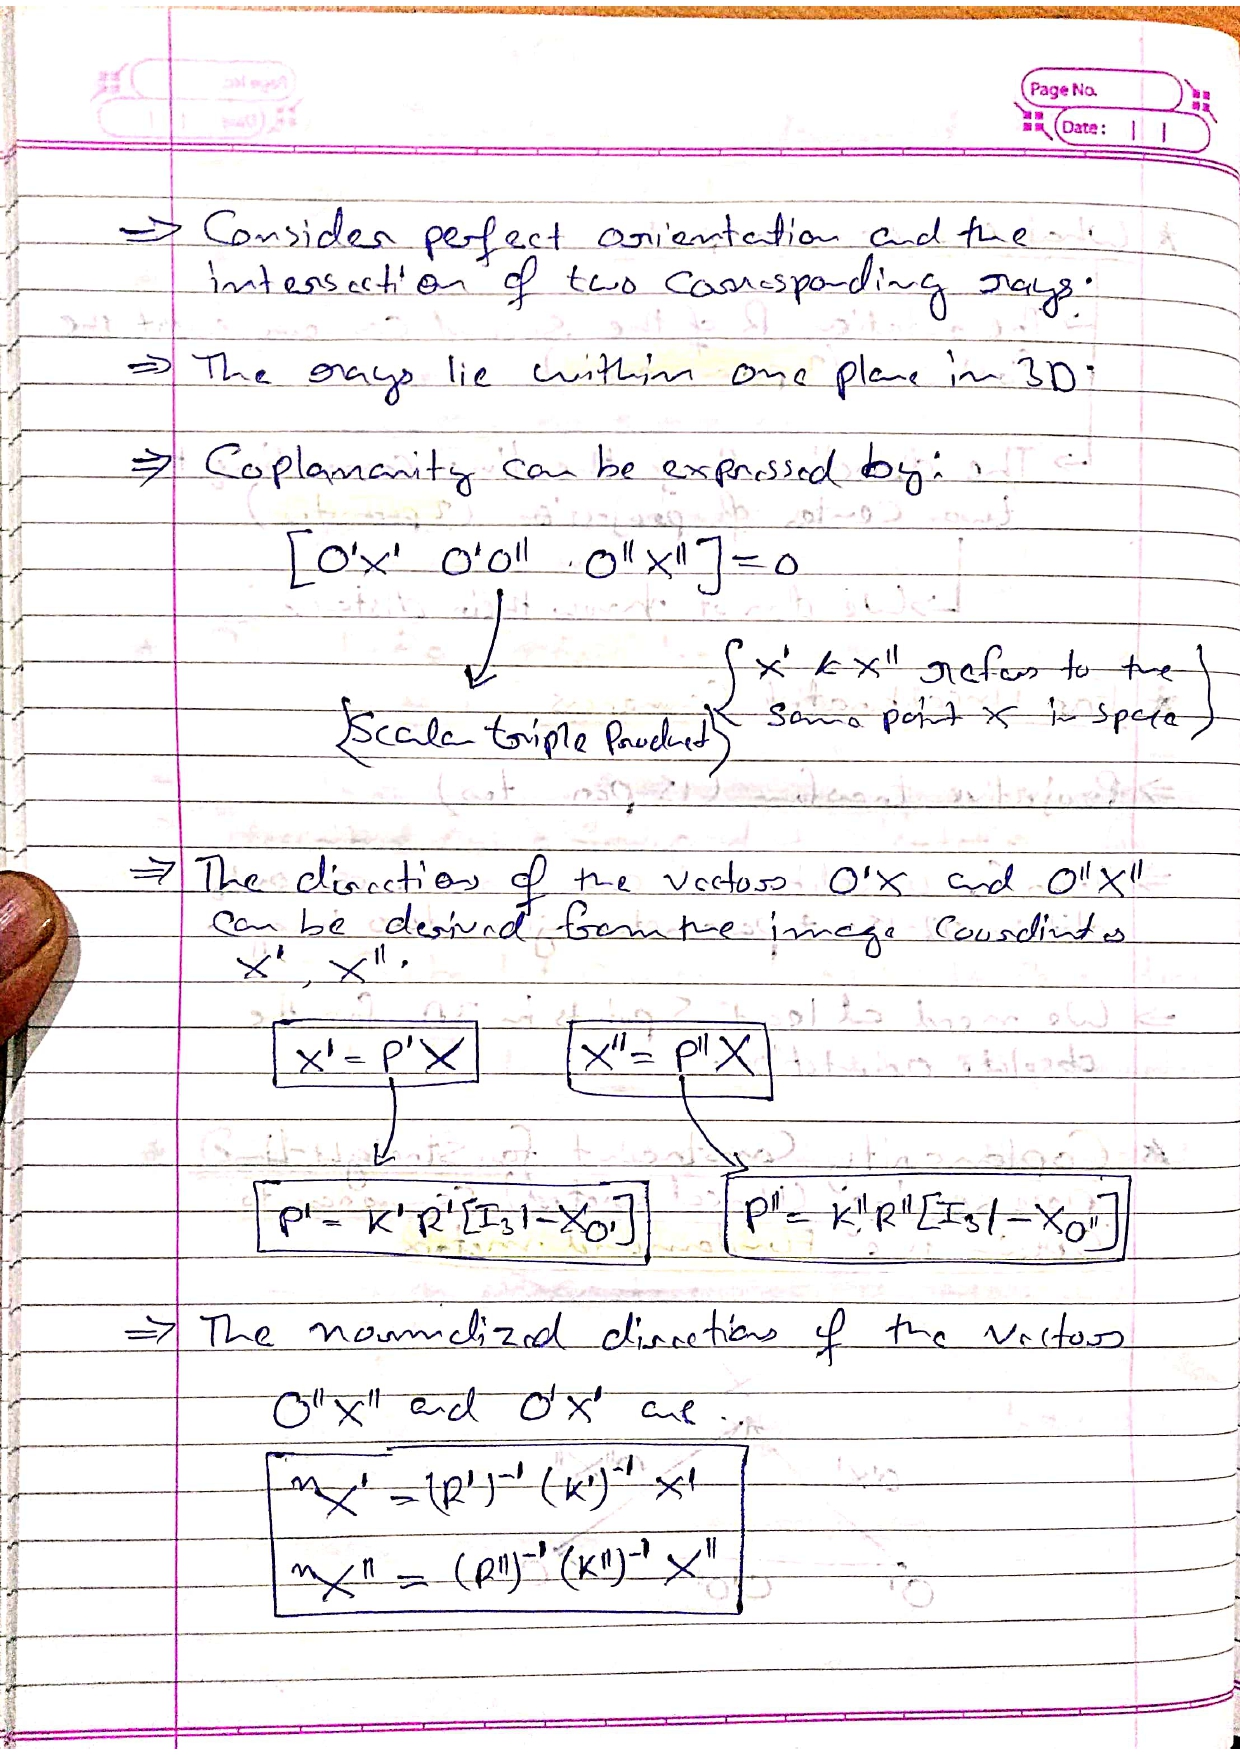 Page No.
Date:
⇒ Consider perfect orientation and the
intersection of two corresponding rays.
⇒ The rays lie within one plane in 3D.
⇒ Coplanarity can be expressed by:
[O'X' O'O'' O''X''] = 0
{X' & X'' refers to the
same point X in space}
{Scalar triple Product}
⇒ The directions of the vectors O'X and O''X''
can be derived from the image coordinates
X', X''.
X' = P'X X'' = P''X
P' = K'R'[I₃|-X_O'] P'' = K''R''[I₃|-X_O'']
⇒ The normalized directions of the vectors
O''X'' and O'X' are..
ⁿX' = (R')⁻¹ (K')⁻¹ X'
ⁿX'' = (R'')⁻¹ (K'')⁻¹ X''